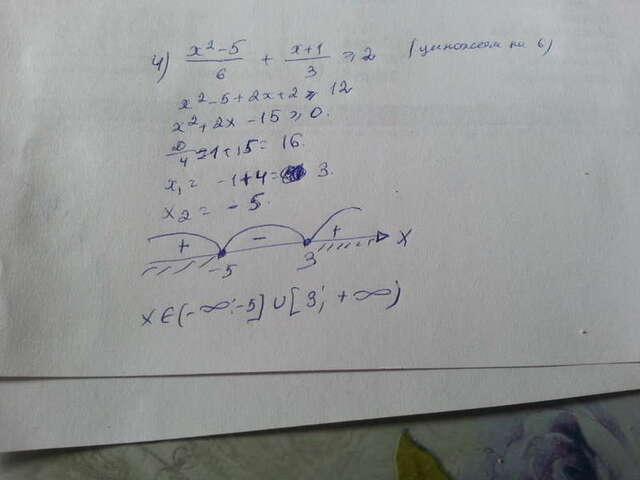 4) (x²-5)/6 + (x+1)/3 ⩾ 2 (умножаем на 6)
x²-5+2x+2 ⩾ 12
x²+2x-15 ⩾ 0.
D/4 = 1+15 = 16.
x₁ = -1+4 = 3.
x₂ = -5.
+ - + X
-5 3
x∈(-∞;-5]∪[3; +∞)